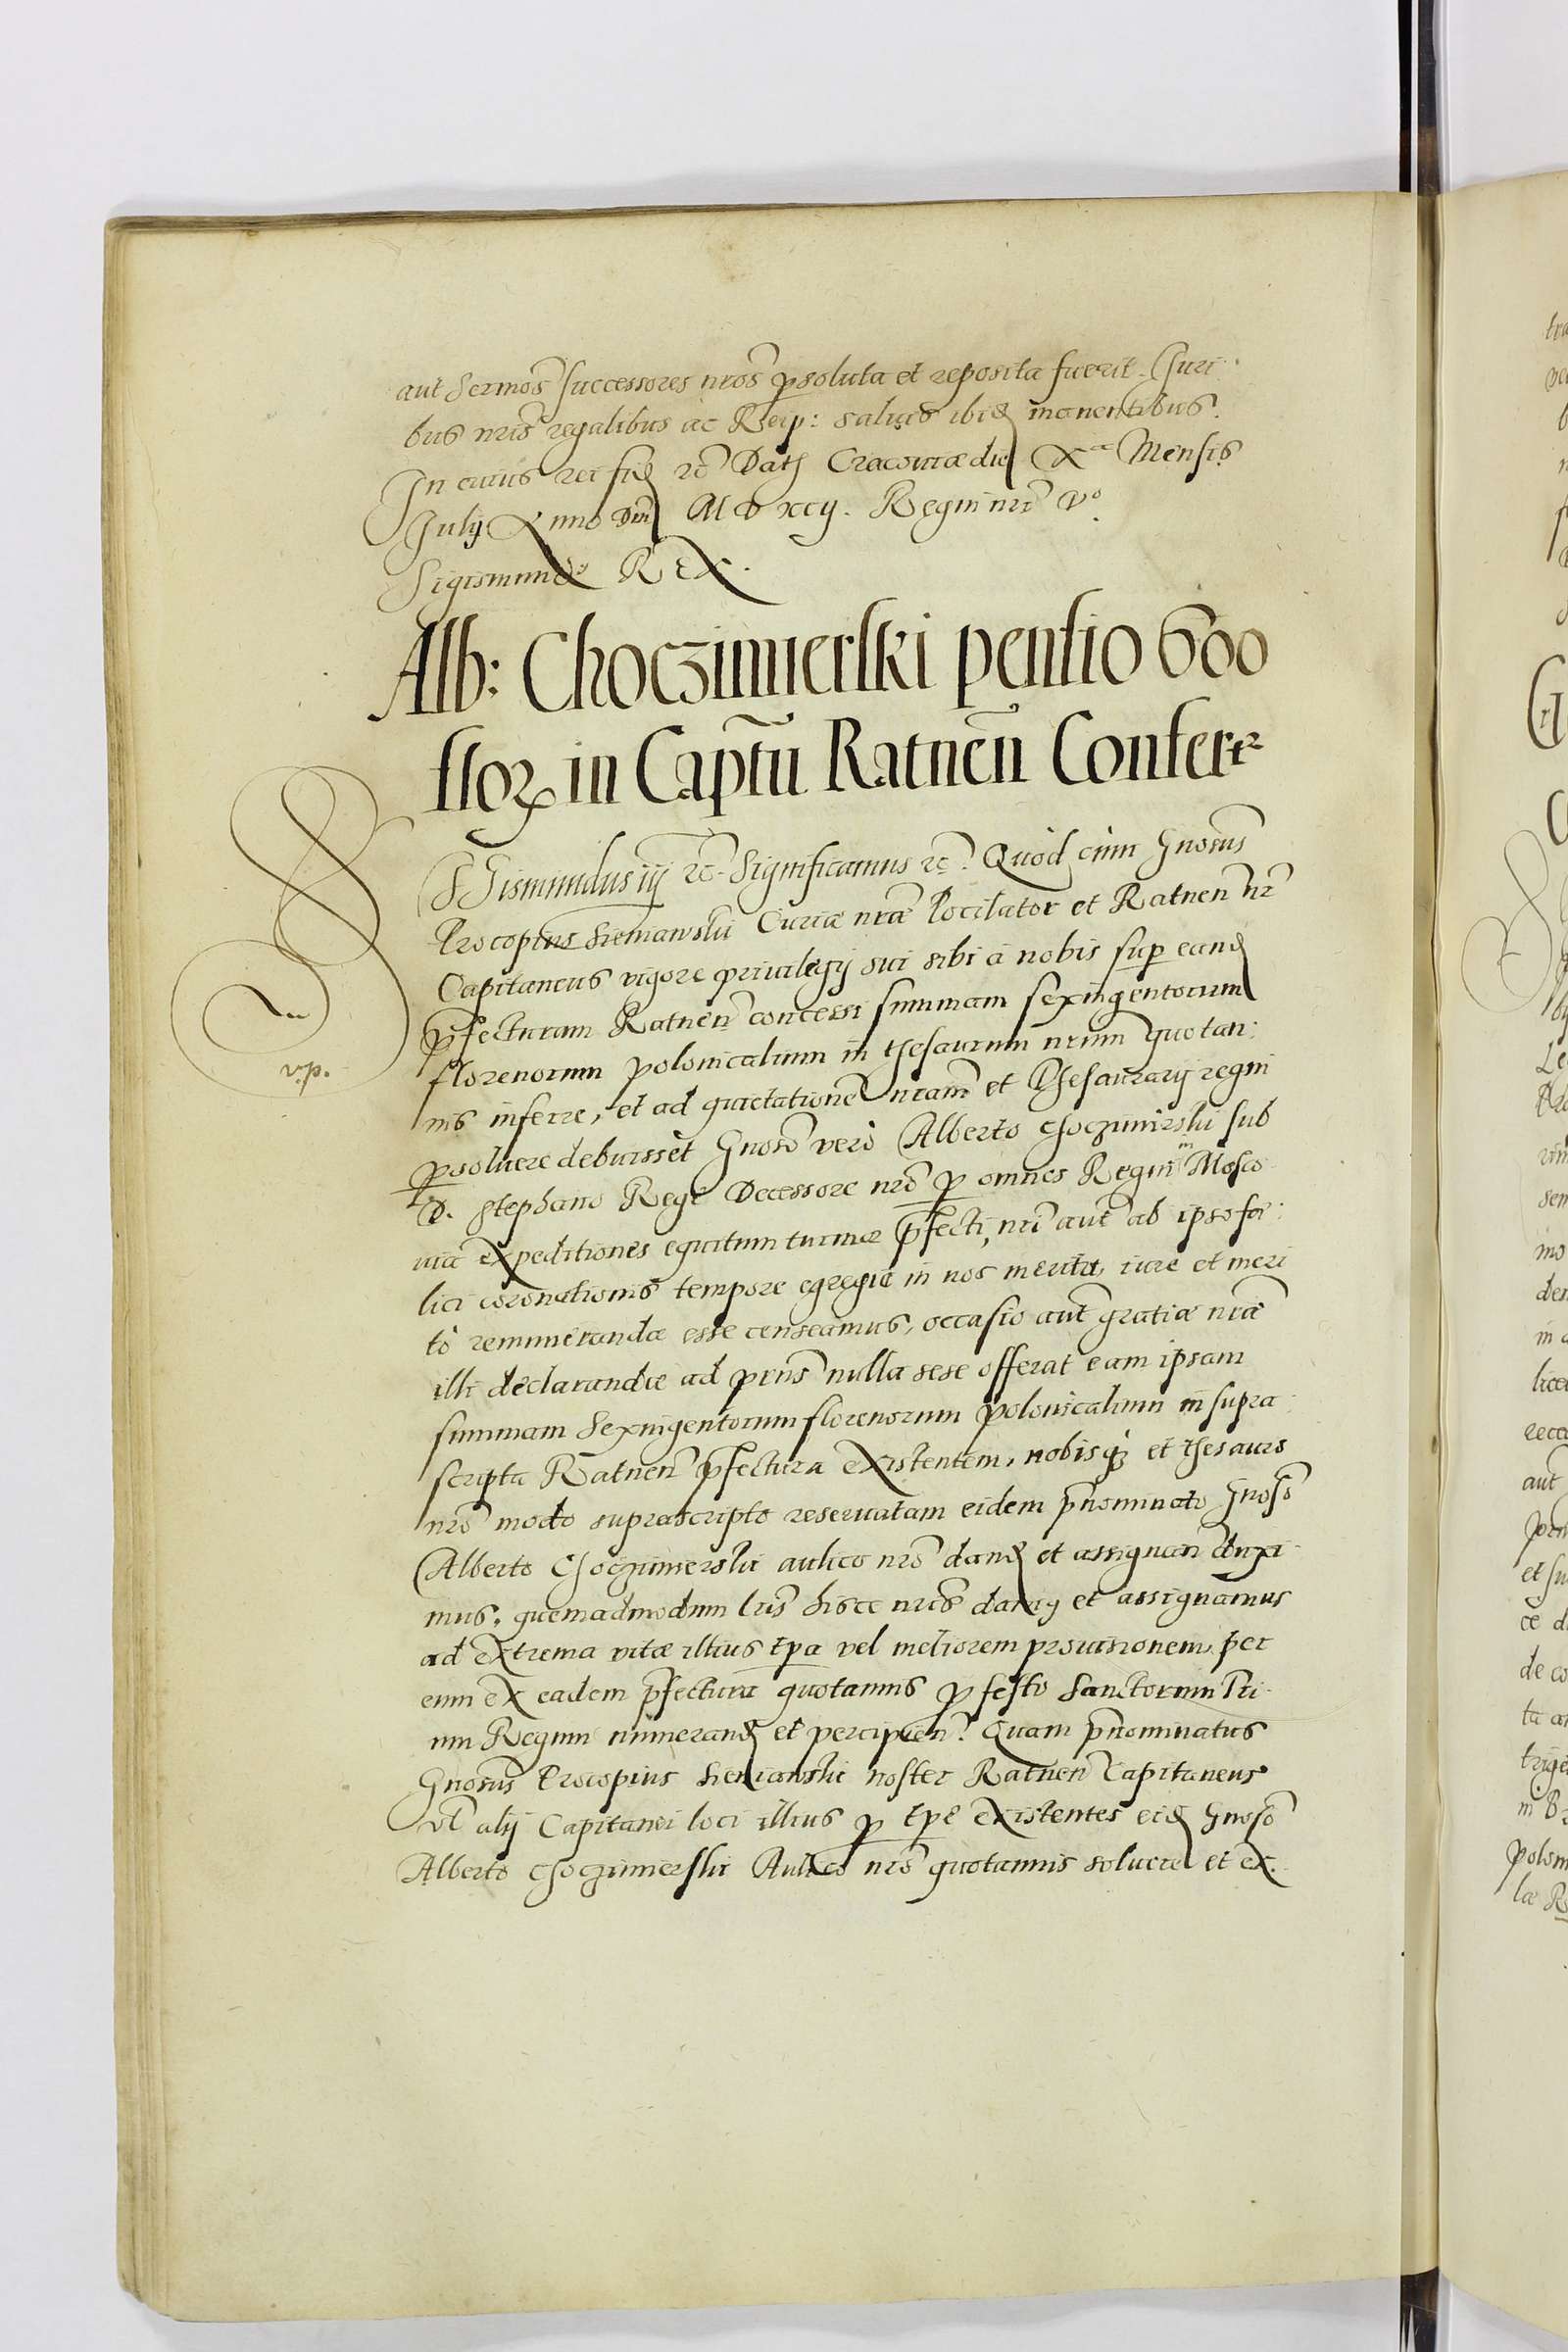 aut Sermos successores nros psoluta et reposita fuerit. Juri
bus nris regalibus ac Reip: saluis ibid manentibus.
In cuius rei fid &c Dat Cracouiæ die Xa Mensis
July Anno Dni M D xcij. Regni nri Vo
Sigismundus REX.
Alb: Choczimierski pensio 600
flor in Captu Ratnen Confertr
SGismundus iij &c. Significamus &c. Quòd cùm Gnosus
Procopius Sieniawski Curiæ nræ Pocilator et Ratnen nr
Capitaneus vigore priuilegij sui sibi à nobis sup eand
pfecturam Ratnen concessi summam sexingentorum
florenorum polonicalium in thesaurum nrum quotan:
nis inferre, et ad quietatione nram et Thesaurarij regni
psoluere debuisset Gnoso verò Alberto Choczimirski sub
D. Stephano Rege Decessore nro p omnes Regni in Mosco
uia expeditiones equitum turmæ pfecti, nri aut ab ipso foe:
lici coronationis tempore egregiè in nos merita, iure et meri
tò remuneranda esse censeamus, occasio aut gratiæ nræ
illi declarandæ ad prns nulla sese offerat eam ipsam
summam Sexingentorum florenorum polonicalium in supra:
scripta Ratnen pfectura existentem, nobisq; et thesauro
nro modo suprascripto reseruatam eidem pnominato Gnoso
Alberto Choczimierski aulico nro dand et assignan duxi
mus, quemadmodum lris hisce nris damus et assignamus
ad extrema vitæ illius tpa vel meliorem prouisionem, per
eum ex eadem pfectura quotannis p festo Sanctorum Tri
um Regum numerand et percipien. Quam pnominatus
Gnosus Procopius Sieniawski noster Ratnen Capitaneus
vl alij Capitanei loci illius p tpe existentes eid Gnoso
Alberto Choczimierski Aulico nro quotannis soluere et ex.
vip.